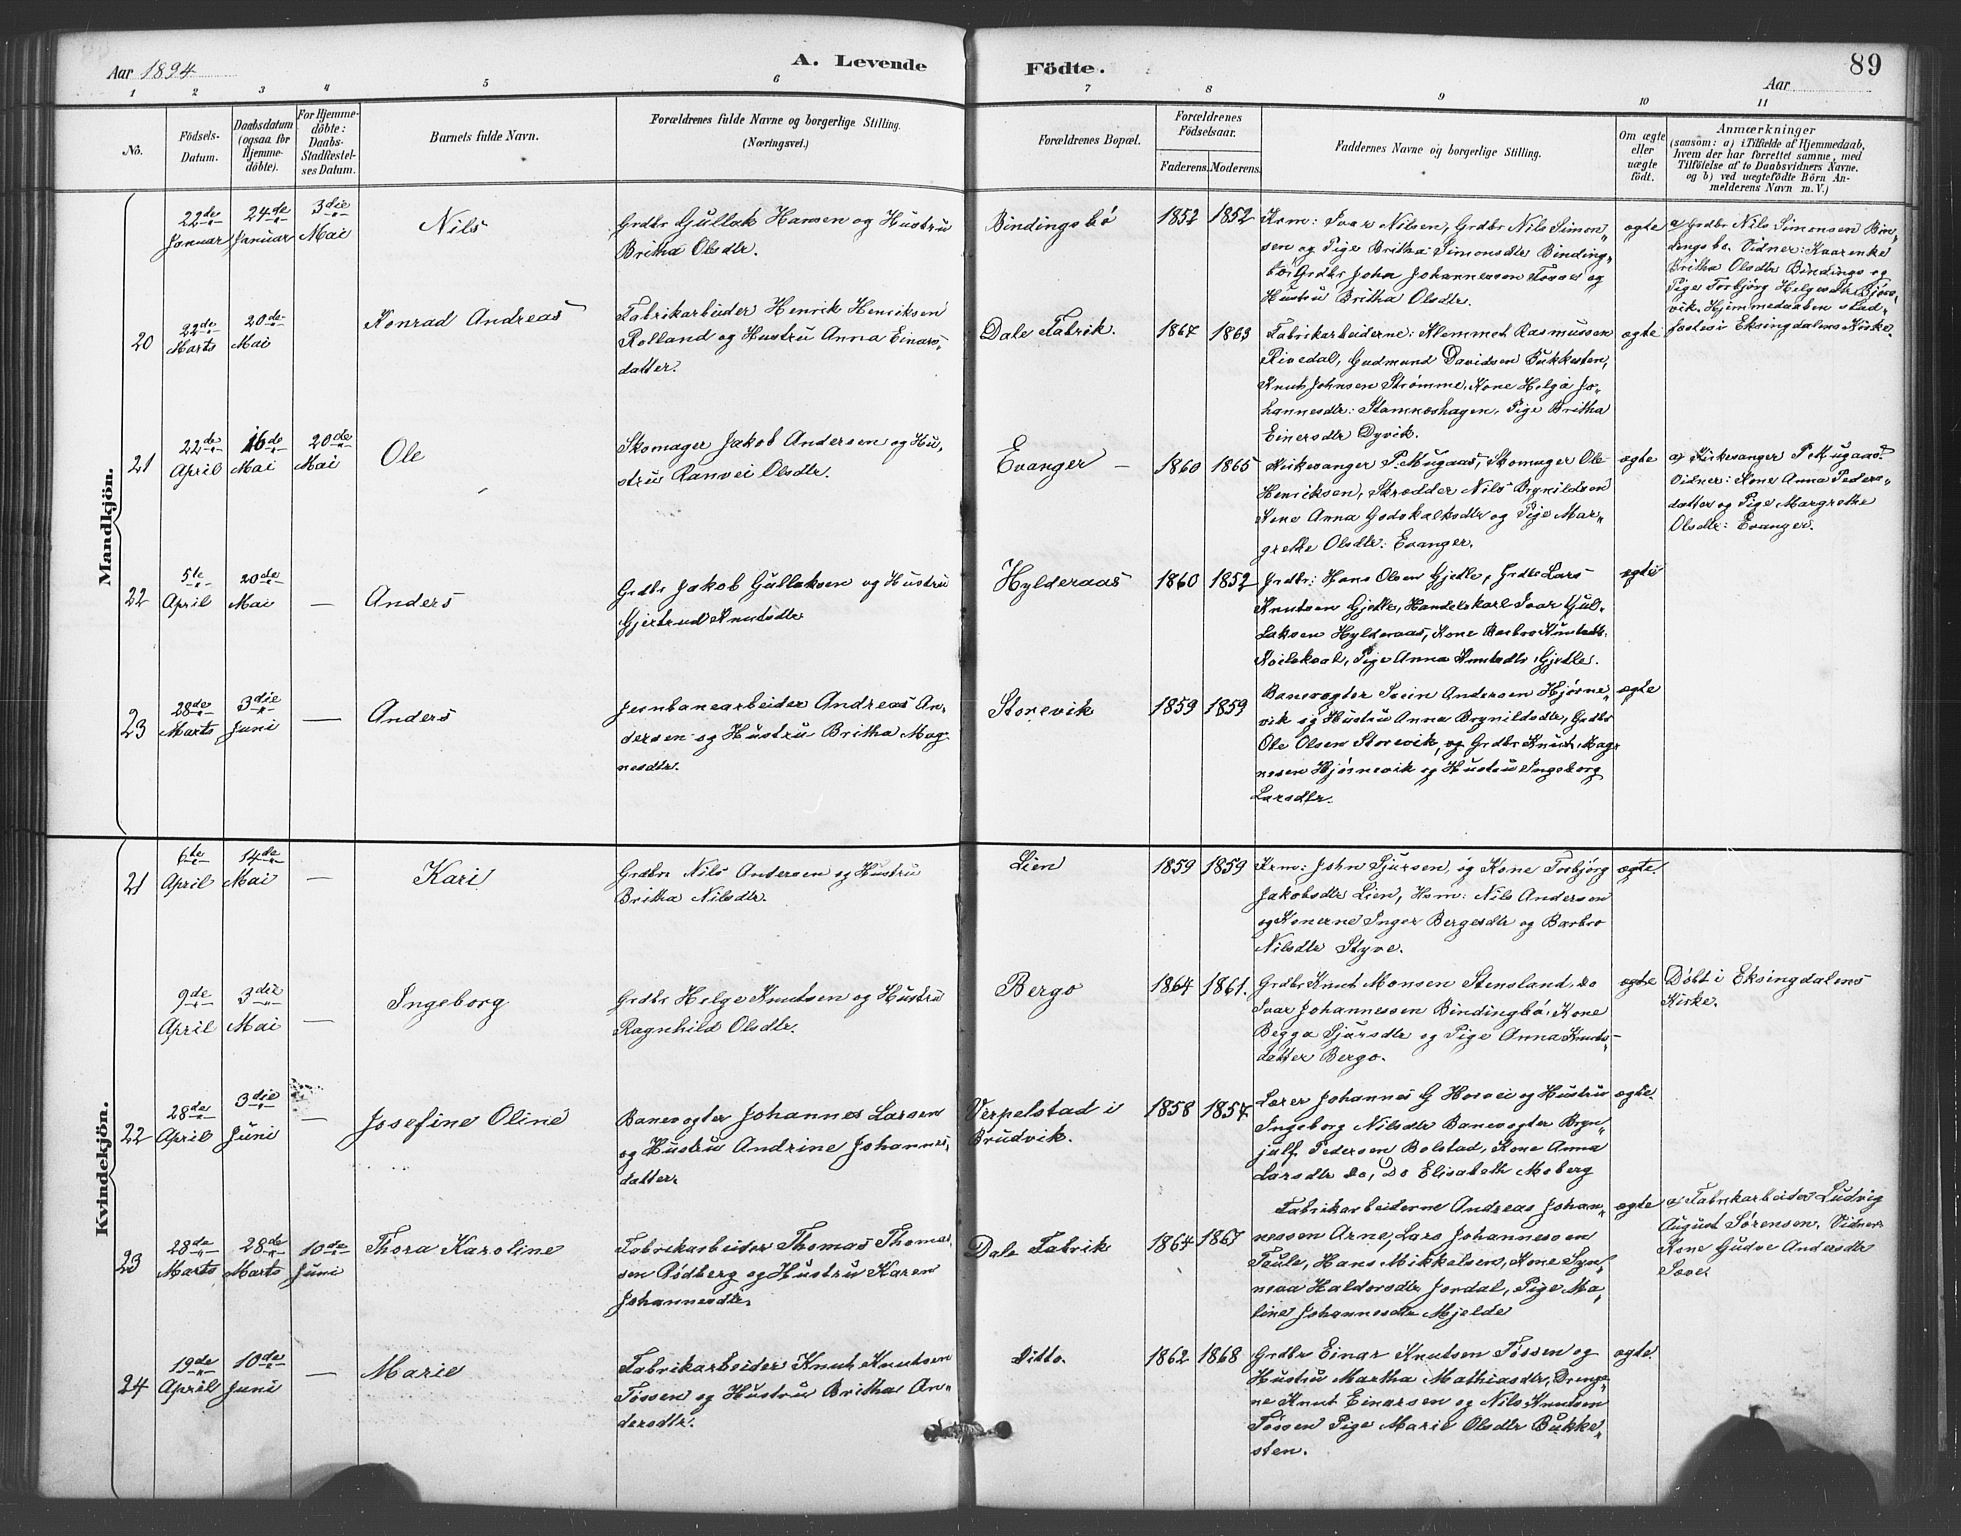 Aar 1894
A. Levende
Födte.
Aar
89
1 2 3 4 5 6 7 8 9 10 11
No.
Födsels-
Datum.
Daabsdatum
(ogsaa for
Hjemme-
döbte).
For Hjemme-
döbte:
Daabs-
Stadfæstel-
ses Datum.
Barnets fulde Navn.
Forældrenes fulde Navne og borgerlige Stilling.
(Næringsvei.)
Forældrenes Bopæl.
Forældrenes
Födselsaar.
Faderens.
Moderens.
Faddernes Navne og borgerlige Stilling.
Om ægte
eller
uægte
födt.
Anmærkninger
(saasom: a) i Tilfælde af Hjemmedaab,
hvem der har forrettet samme, med
Tilföielse af to Daabsvidners Navne.
og b) ved uægtefödte Börn An-
melderens Navn m. V.)
Mandkjön.
22de Januar
24de Januar
3die Mai
Nils
Grdbr Gullak Hansen og Hustru
Britha Olsdtr.
Bindingsbø
1852 1852
Krm: Ivar Nilsen, Grdbr Nils Simon-
sen og Pige Britha Simonsdtr Binding-
bø. Grdbr John Johannessen Fosse og
Hustru Britha Olsdtr.
ægte
a) Grdbr Nils Simonsen Bin-
dingsbø. Vidner: Kaarenke
Britha Olsdtr Bindings og
Pige Torbjörg Helgesdtr Bjørn-
vik. Hjemmedaaben stad-
fæstes i Eksingdalens Kirke.
20
22de Marts
20de Mai
Konrad Andreas
Fabrikarbeider Henrik Henriksen
Rolland og Hustru Anna Einars-
datter.
Dale Fabrik.
1867 1863
Fabrikarbeiderne: Klemmet Rasmussen
Rivedal, Gudmund Davidsen Bukkesten,
Knut Johnsen Strømme, Kone Helga Jo-
hannesdtr: Stamneshagen, Pige Britha
Einersdtr Dyvik.
ægte
21
22de April
16de Mai
20de Mai
Ole
Skomager Jakob Andersen og Hu-
stru Ranvei Olsdtr.
Evanger –
1860 1865
Kirkesanger P. Mugaas, Skomager Ole
Henriksen, Skrædder Nils Brynildsen
Kone Anna Godskalksdtr og Pige Mar-
grethe Olsdtr: Evanger.
ægte
a) Kirkesanger P. Mugaas
Vidner: Kone Anna Peders-
datter og Pige Margrethe
Olsdtr: Evanger.
22
5te April
20de Mai
—
Anders
Grdbr Jakob Gullaksen og Hustru
Gjertrud Knutsdtr
Hylderaas
1860 1852
Grdbr: Hans Olsen Gjetle, Grdbr Lars
Knutsen Gjetle, Handelskarl Ivar Gul-
laksen Hylderaas, Kone Barbro Knutsdtr.
Pige Anna Knutsdtr Gjetle.
ægte
23
28de Marts
3die Juni
—
Anders
Jernbanearbeider Andreas An-
dersen og Hustru Britha Mag-
nesdtr.
Storevik
1859 1859
Banevogter Svein Andersen Hjørne-
vik og Hustru Anna Brynildsdtr, Grdbr
Ole Olsen Storevik, og Grdbr Knut Mag-
nesen Hjørnevik og Hustru Ingeborg
Larsdtr.
ægte
Kvindekjön.
21
6te April
14de Mai
—
Kari
Grdbr Nils Andersen og Hustru
Britha Nilsdtr.
Lien
1859 1859
Krm: John Sjursen, og Kone Torbjørg
Jakobsdtr Lien, Hsm: Nils Andersen
og Konerne Inger Bergesdtr og Barbro
Nilsdtr Styve.
ægte.
9de April
3die Mai
—
Ingeborg
Grdbr Helge Knutsen og Hustru
Ragnhild Olsdtr.
Bergo
1864 1861.
Grdbr Knut Monsen Stensland do
Ivar Johannessen Bindingbø. Kone
Begga Sjursdtr og Pige Anna Knuts-
datter Bergo.
ægte
Döbt i Eksingdalens
Kirke.
22
28de April
3die Juni
—
Josefine Oline
Banevogter Johannes Larsen
og Hustru Andrine Johannes-
datter.
Verpelstad i
Brudvik.
1858 1854.
Lærer Johannes G Horvei og Hustru
Ingeborg Nilsdtr Banevogter Bryn-
julf Pedersen Bolstad, Kone Anna
Larsdtr do, Do Elisabeth Moberg
ægte.
23
28de Marts
28de Marts
10de Juni
Thora Karoline
Fabrikarbeider Thomas Thomas-
sen Rødberg og Hustru Karen
Johannesdtr.
Dale Fabrik
1864 1867
Fabrikarbeiderne Andreas Johan-
nessen Arne, Lars Johannessen
Teule, Hans Mikkelsen, Kone Syn-
neva Haldorsdtr Jordal, Pige Ma-
line Johannesdtr Mjelde
ægte
a) Fabrikarbeider Ludvig
August Sørensen. Vidner
Kone Gudve Andersdtr
24
19de April
10de Juni
—
Marie
Fabrikarbeider Knut Knutsen
Tøssen og Hustru Britha An-
dersdtr.
Ditto.
1862 1868
Grdbr Einar Knutsen Tøssen og
Hustru Martha Mathiasdtr, Drenge-
ne Knut Einarsen og Nils Knutsen
Tøssen Pige Marie Olsdtr Bukke-
sten.
ægte.